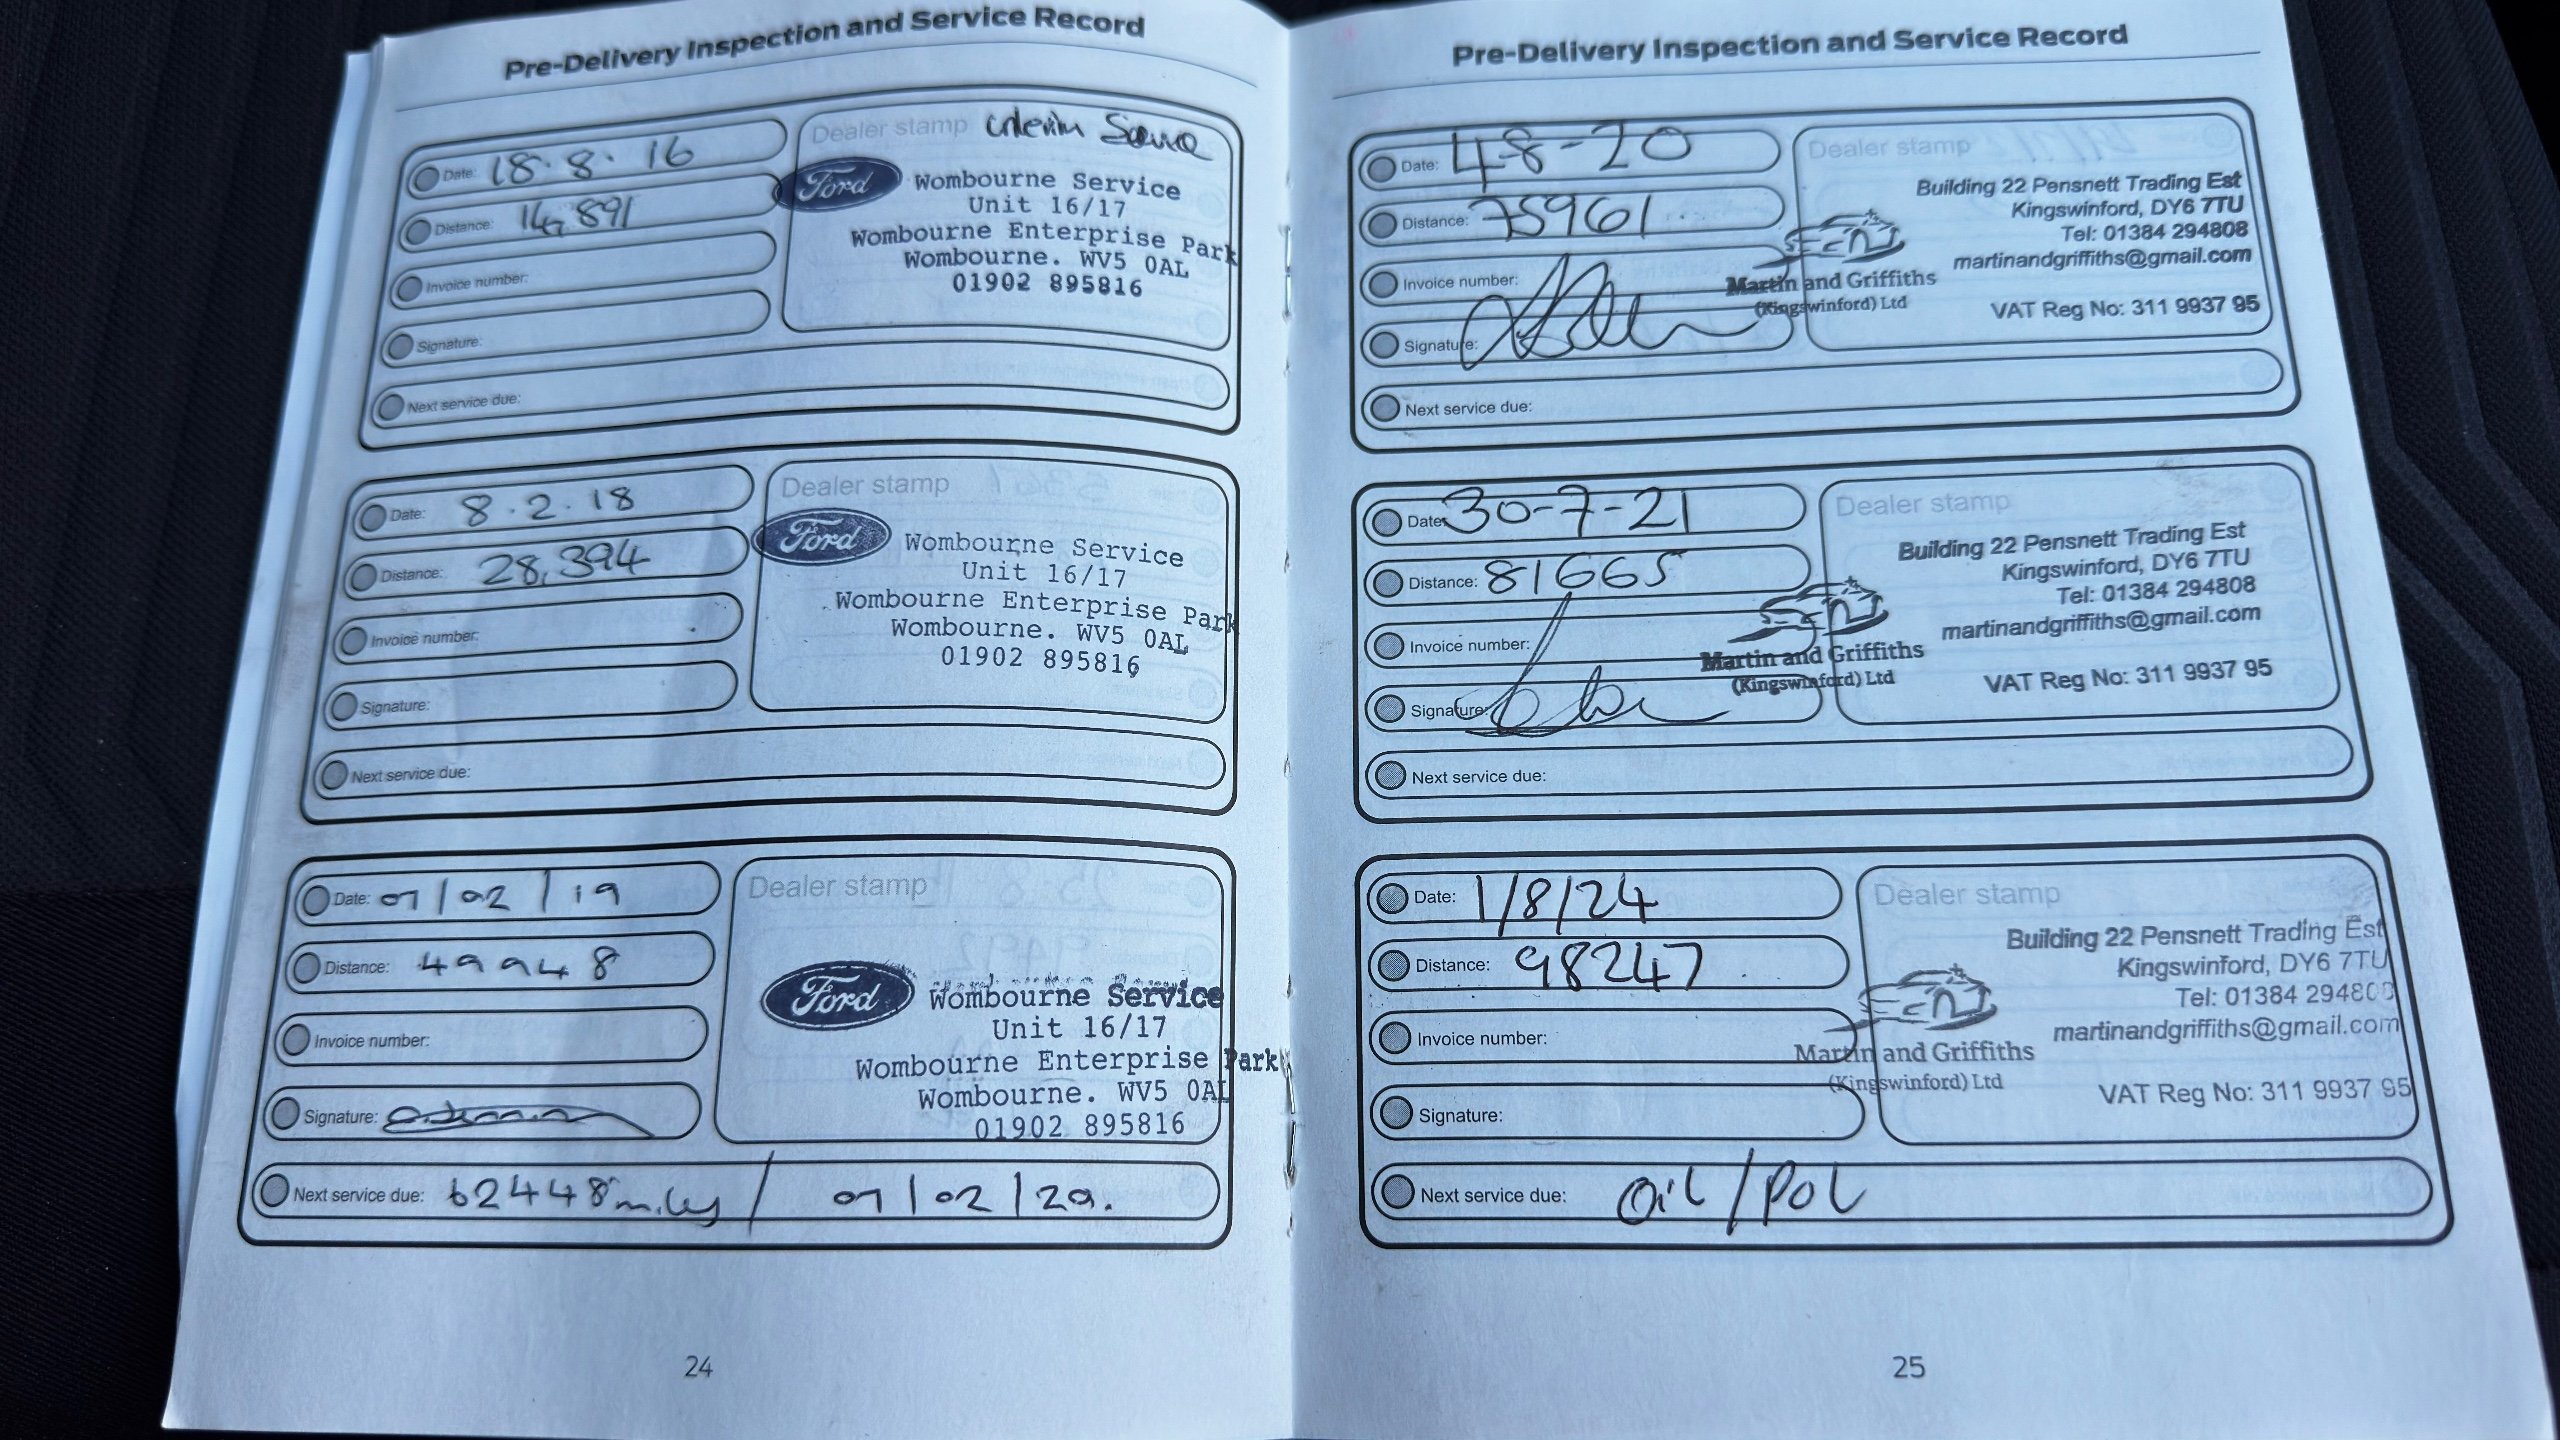 Pre-Delivery Inspection and Service Record
Date: 18.8.16
Distance: 14,891
Invoice number:
Signature:
Next service due:
Dealer stamp
Ford
Wombourne Service
Unit 16/17
Wombourne Enterprise Park
Wombourne. WV5 0AL
01902 895816
Date: 8.2.18
Distance: 28,394
Invoice number:
Signature:
Next service due:
Dealer stamp
Ford
Wombourne Service
Unit 16/17
Wombourne Enterprise Park
Wombourne. WV5 0AL
01902 895816
Date: 07/02/19
Distance: 49948
Invoice number:
Signature:
Next service due: 62448 miles / 07/02/20.
Dealer stamp
Ford
Wombourne Service
Unit 16/17
Wombourne Enterprise Park
Wombourne. WV5 0AL
01902 895816
24
Pre-Delivery Inspection and Service Record
Date: 4-8-20
Distance: 75961
Invoice number:
Signature:
Next service due:
Dealer stamp
Building 22 Pensnett Trading Est
Kingswinford, DY6 7TU
Tel: 01384 294808
martinandgriffiths@gmail.com
Martin and Griffiths
(Kingswinford) Ltd
VAT Reg No: 311 9937 95
Date: 30-7-21
Distance: 81665
Invoice number:
Signature:
Next service due:
Dealer stamp
Building 22 Pensnett Trading Est
Kingswinford, DY6 7TU
Tel: 01384 294808
martinandgriffiths@gmail.com
Martin and Griffiths
(Kingswinford) Ltd
VAT Reg No: 311 9937 95
Date: 1/8/24
Distance: 98247
Invoice number:
Signature:
Next service due: Oil/Pol
Dealer stamp
Building 22 Pensnett Trading Est
Kingswinford, DY6 7TU
Tel: 01384 294808
martinandgriffiths@gmail.com
Martin and Griffiths
(Kingswinford) Ltd
VAT Reg No: 311 9937 95
25